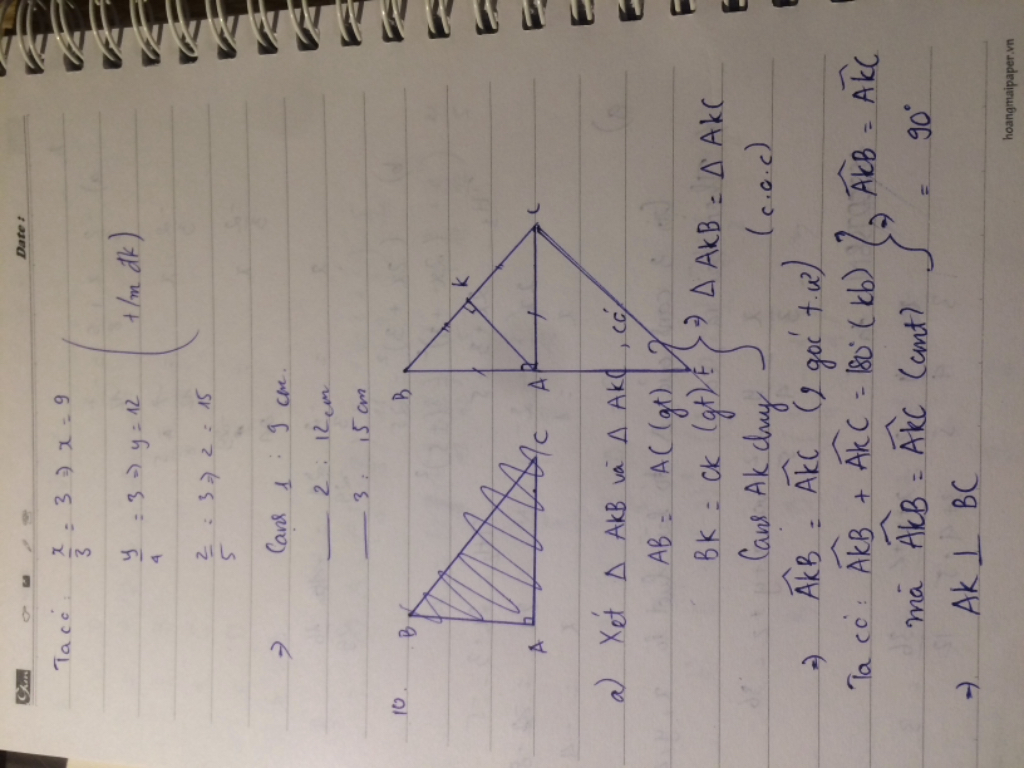 Date:
Ta có: x/3 = 3 => x = 9
y/4 = 3 => y = 12 (t/m đk)
z/5 = 3 => z = 15
=> Cạnh 1 : 9 cm.
___ 2 : 12 cm
___ 3 : 15 cm
10.
B A C
B K C A E
a) Xét Δ AKB và Δ AKC, có
AB = AC (gt)
BK = CK (gt) } => Δ AKB = Δ AKC
Cạnh AK chung (c.c.c)
=> AKB = AKC (2 góc t.ư)
Ta có: AKB + AKC = 180° (kb) } => AKB = AKC
mà AKB = AKC (cmt) = 90°
=> AK ⊥ BC
hoangmaipaper.vn